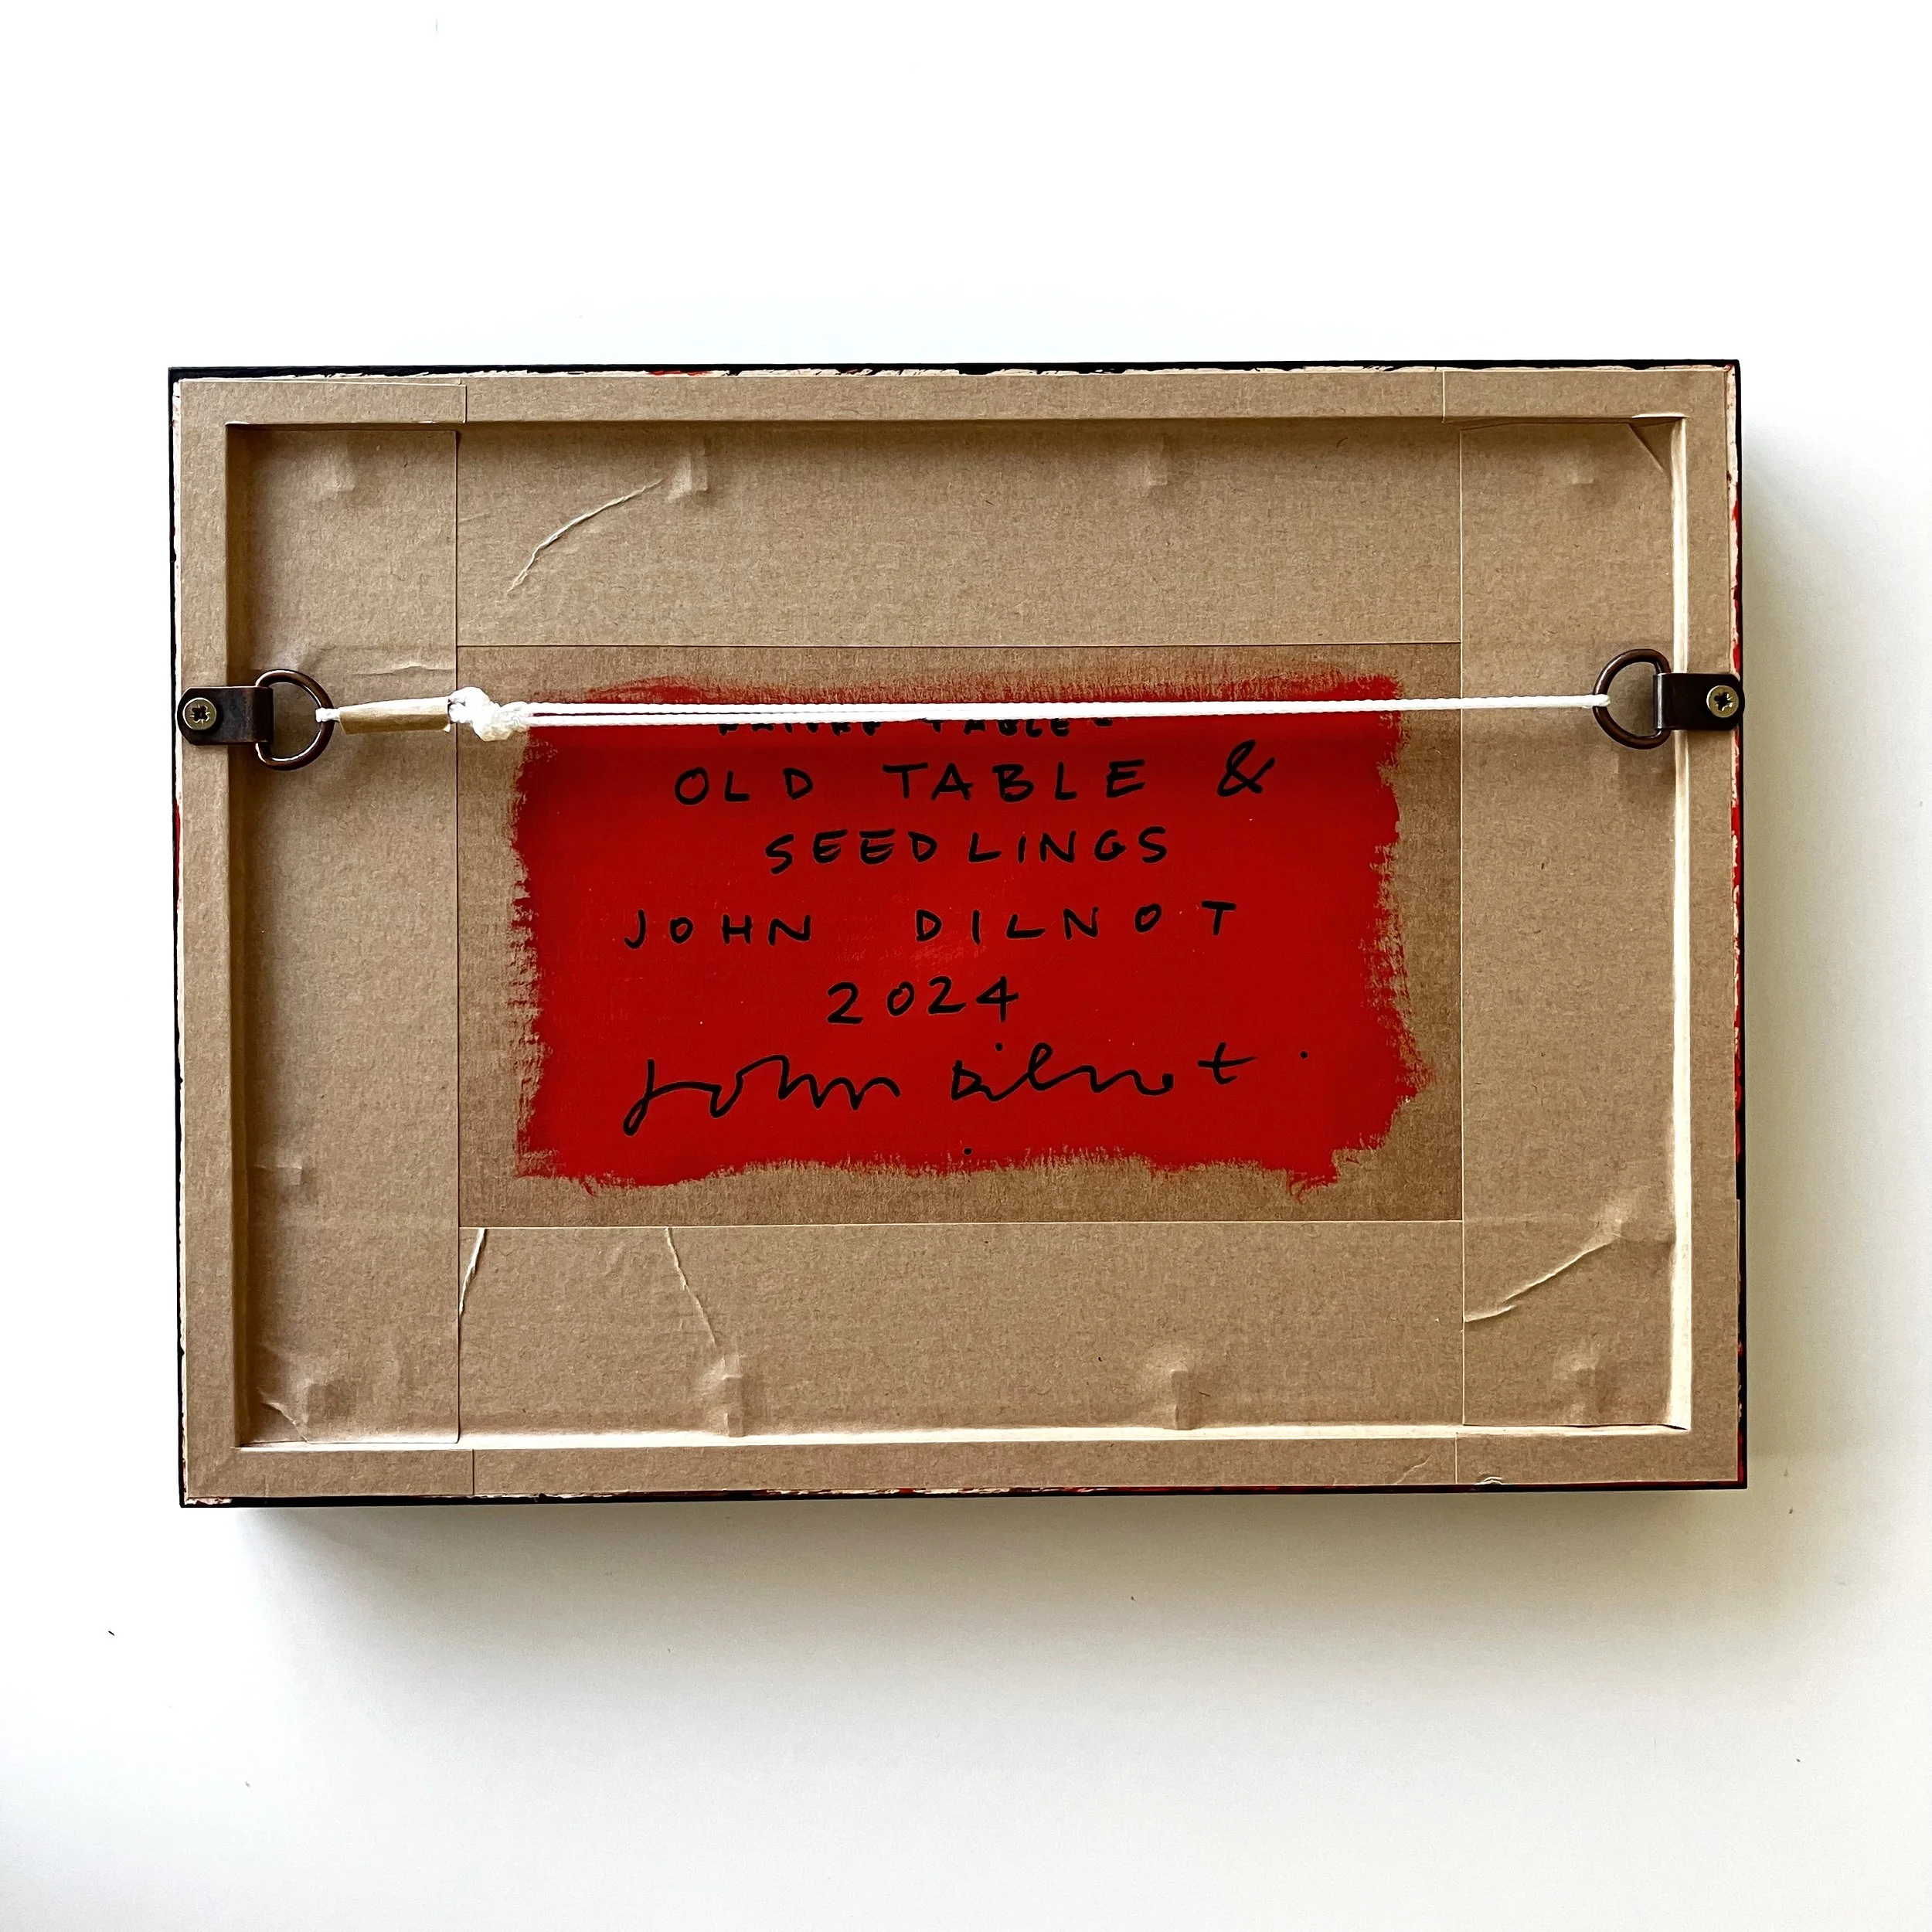 TABLE -
OLD TABLE &
SEEDLINGS
JOHN DILNOT
2024
John Dilnot.